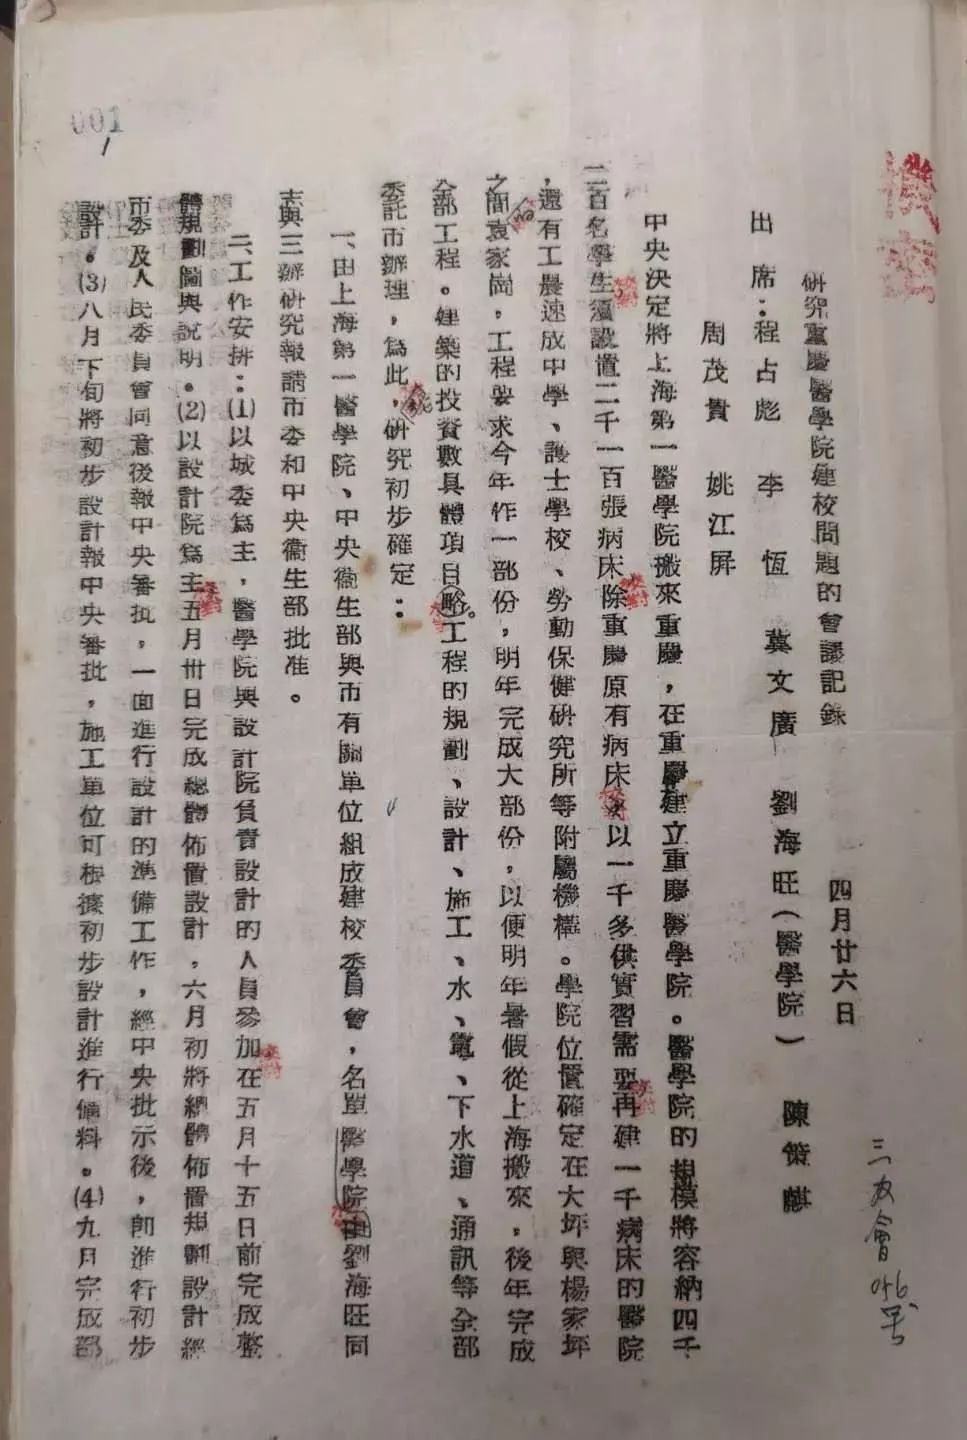 研究重慶醫學院建校問題的會議記錄
四月廿六日
出席：程占彪 李恆 冀文廣 劉海旺（醫學院） 陳策麒
周茂貴 姚江屏
中央決定將上海第一醫學院搬來重慶，在重慶建立重慶醫學院。醫學院的規模將容納四千
二百名學生，須設置二千一百張病床除重慶原有病床以一千多供實習需要再建一千病床的醫院
，還有工農速成中學、護士學校、勞動保健研究所等附屬機構。學院位置確定在大坪與楊家坪
之間袁家崗，工程要求今年作一部份，明年完成大部份，以便明年暑假從上海搬來，後年完成
全部工程。建築的投資數具體項目略。工程的規劃、設計、施工、水、電、下水道、通訊等全部
委託市辦理，為此，研究初步確定：
一、由上海第一醫學院、中央衞生部與市有關單位組成建校委員會，名單醫學院由劉海旺同
志與三辦研究報請市委和中央衞生部批准。
二、工作安排：(1)以城委為主，醫學院與設計院負責設計的人員參加在五月十五日前完成整
體規劃圖與說明。(2)以設計院為主五月卅日完成總體佈置設計，六月初將總體佈置規劃設計經
市委及人民委員會同意後報中央審批，一面進行設計的準備工作，經中央批示後，卽進行初步
設計。(3)八月下旬將初步設計報中央審批，施工單位可根據初步設計進行備料。(4)九月完成部
001
1
校對
校對
校對
校對
校對
三办會
046号